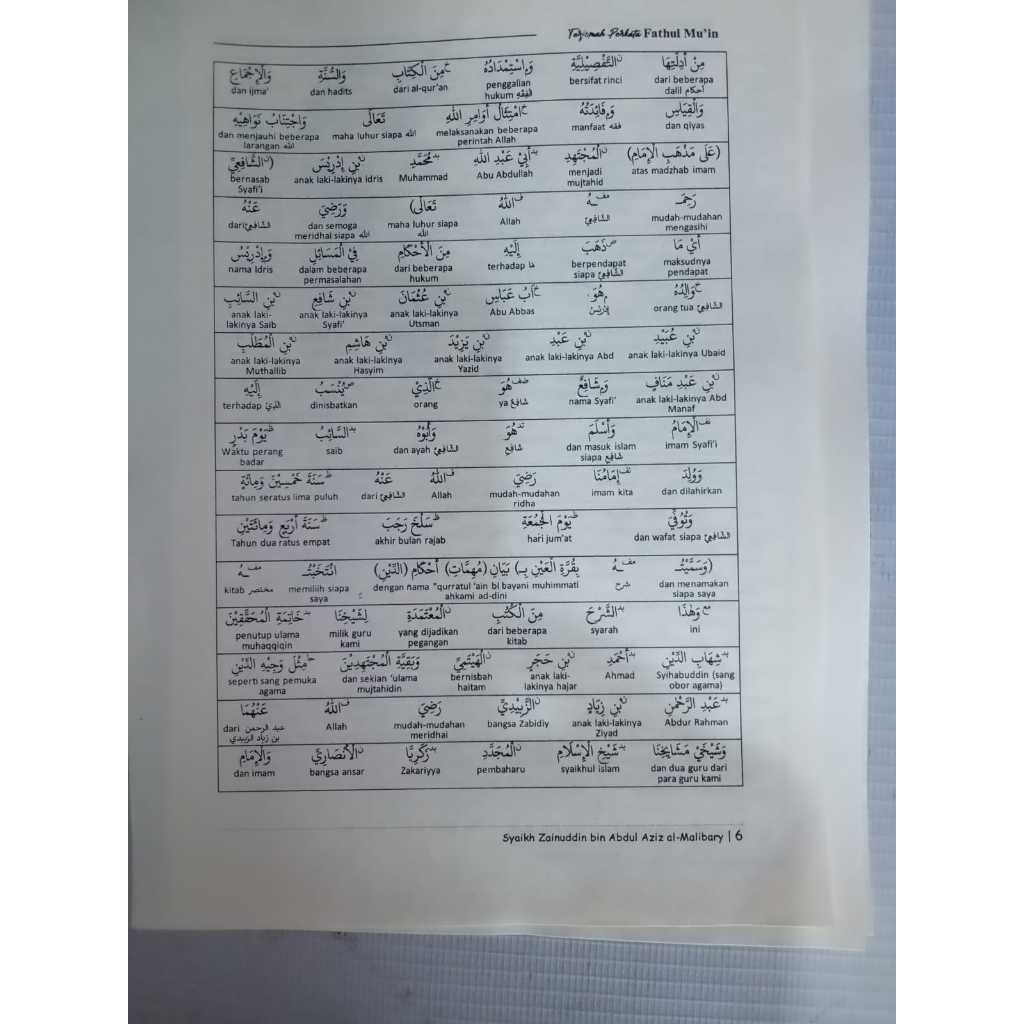 Terjemah Perkata Fathul Mu'in
مِنْ أَدِلَّتِهَا التَّفْصِيْلِيَّةِ وَاسْتِمْدَادُهُ مِنَ الْكِتَابِ وَالسُّنَّةِ وَالْإِجْمَاعِ
dari beberapa dalil أحكام bersifat rinci penggalian hukum فقه dari al-qur'an dan hadits dan ijma'
وَالْقِيَاسِ وَفَائِدَتُهُ امْتِثَالُ أَوَامِرِ اللهِ تَعَالَى وَاجْتِنَابُ نَوَاهِيْهِ
dan qiyas manfaat فقه melaksanakan beberapa perintah Allah maha luhur siapa الله dan menjauhi beberapa larangan الله
(عَلَى مَذْهَبِ الْإِمَامِ) الْمُجْتَهِدِ أَبِيْ عَبْدِ اللهِ مُحَمَّدِ بْنِ إِدْرِيْسَ (الشَّافِعِيِّ
atas madzhab imam menjadi mujtahid Abu Abdullah Muhammad anak laki-lakinya idris bernasab Syafi'i
رَحِمَـ ـهُ اللهُ تَعَالَى) وَرَضِيَ عَنْهُ
mudah-mudahan mengasihi الشَّافِعِيّ Allah maha luhur siapa الله dan semoga meridhai siapa الله dari الشَّافِعِيّ
أَيْ مَا ذَهَبَ إِلَيْهِ مِنَ الْأَحْكَامِ فِيْ الْمَسَائِلِ وَإِدْرِيْسُ
maksudnya pendapat berpendapat siapa الشَّافِعِيّ terhadap مَا dari beberapa hukum dalam beberapa permasalahan nama Idris
وَالِدُهُ هُوَ ابْنُ عَبَّاسِ بْنِ عُثْمَانَ بْنِ شَافِعِ بْنِ السَّائِبِ
orang tua الشَّافِعِيّ إِدْرِيْسُ Abu Abbas anak laki-lakinya Utsman anak laki-lakinya Syafi' anak laki-lakinya Saib
بْنِ عُبَيْدِ بْنِ عَبْدِ بْنِ يَزِيْدَ بْنِ هَاشِمِ بْنِ الْمُطَّلِبِ
anak laki-lakinya Ubaid anak laki-lakinya Abd anak laki-lakinya Yazid anak laki-lakinya Hasyim anak laki-lakinya Muthallib
بْنِ عَبْدِ مَنَافٍ وَشَافِعٌ هُوَ الَّذِيْ يُنْسَبُ إِلَيْهِ
anak laki-lakinya Abd Manaf nama Syafi' ya شَافِعٌ orang dinisbatkan terhadap الَّذِيْ
الْإِمَامُ وَأَسْلَمَ هُوَ وَأَبُوْهُ السَّائِبُ يَوْمَ بَدْرٍ
imam Syafi'i dan masuk islam siapa شَافِع شَافِع dan ayah الشَّافِعِيّ saib Waktu perang badar
وَوُلِدَ إِمَامُنَا رَضِيَ اللهُ عَنْهُ سَنَةَ خَمْسِيْنَ وَمِائَةٍ
dan dilahirkan imam kita mudah-mudahan ridha Allah dari الشَّافِعِيّ tahun seratus lima puluh
وَتُوُفِّيَ يَوْمَ الْجُمُعَةِ سَلْخَ رَجَبَ سَنَةَ أَرْبَعٍ وَمِائَتَيْنِ
dan wafat siapa الشَّافِعِيّ hari jum'at akhir bulan rajab Tahun dua ratus empat
(وَسَمَّيْتُـ ـهُ بِقُرَّةِ الْعَيْنِ بِـ) بَيَانِ (مُهِمَّاتِ) أَحْكَامِ (الدِّيْنِ) انْتَخَبْتُـ ـهُ
dan menamakan siapa saya شرح dengan nama "qurratul 'ain bi bayani muhimmati ahkami ad-din) memiliih siapa saya kitab مختصر
وَلهٰذَا الشَّرْحَ مِنَ الْكُتُبِ الْمُعْتَمَدَةِ لِشَيْخِنَا خَاتِمَةِ الْمُحَقِّقِيْنَ
ini syarah dari beberapa kitab yang dijadikan pegangan milik guru kami penutup ulama muhaqqiqin
شِهَابِ الدِّيْنِ أَحْمَدِ بْنِ حَجَرِ الْهَيْتَمِيِّ وَبَقِيَّةِ الْمُجْتَهِدِيْنَ مِثْلِ وَجِيْهِ الدِّيْنِ
Syihabuddin (sang obor agama) Ahmad anak laki-lakinya hajar bernisbah haitam dan sekian 'ulama mujtahidin seperti sang pemuka agama
عَبْدِ الرَّحْمٰنِ بْنِ زِيَادٍ الزَّبِيْدِيِّ رَضِيَ اللهُ عَنْهُمَا
Abdur Rahman anak laki-lakinya Ziyad bangsa Zabidiy mudah-mudahan meridhai Allah dari عبد الرحمن بن زياد الزبيدي
وَشَيْخَيْ مَشَايِخِنَا شَيْخِ الْإِسْلَامِ الْمُجَدِّدِ زَكَرِيَّا الْأَنْصَارِيِّ وَالْإِمَامِ
dan dua guru dari para guru kami syaikhul islam pembaharu Zakariyya bangsa ansar dan imam
Syaikh Zainuddin bin Abdul Aziz al-Malibary | 6